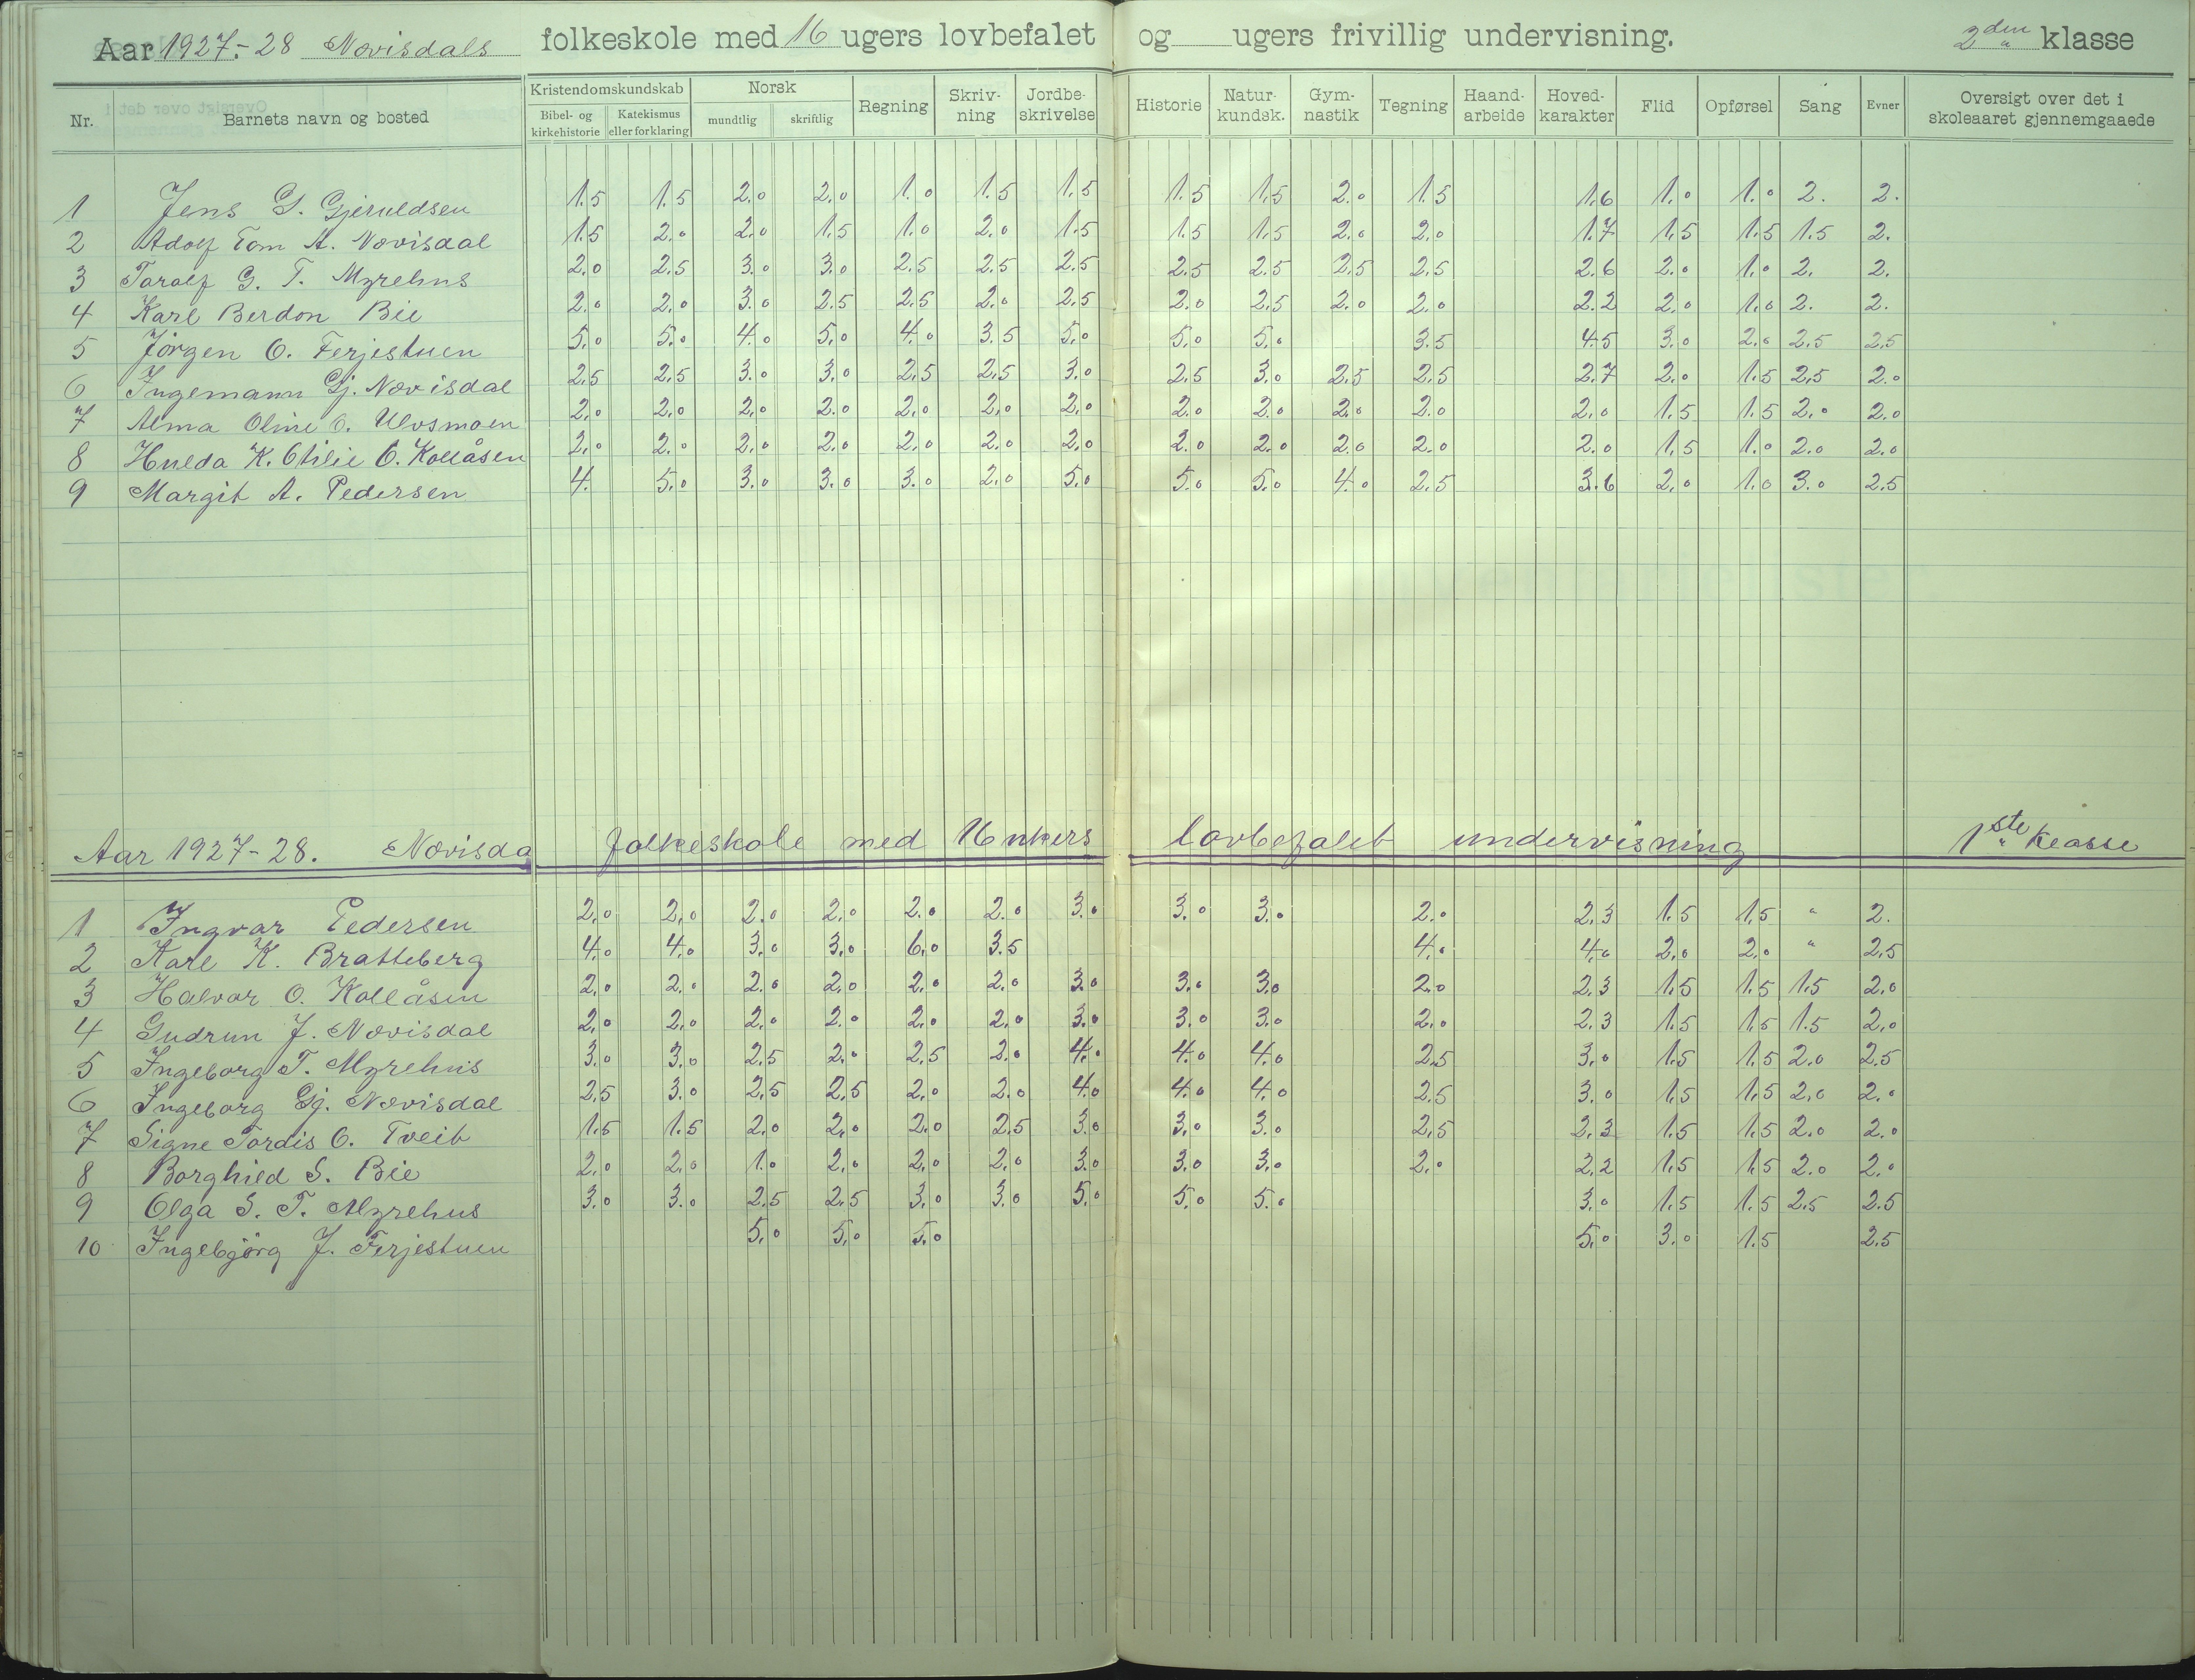 Aar 1927.-28 Nævisdals folkeskole med 16 ugers lovbefalet og ugers frivillig undervisning. 2den klasse
Nr. Barnets navn og bosted Kristendomskundskab Bibel- og kirkehistorie Katekismus eller forklaring Norsk mundtlig skriftlig Regning Skriv-ning Jordbe-skrivelse Historie Natur-kundsk. Gym-nastik Tegning Haand-arbeide Hoved-karakter Flid Opførsel Sang Evner Oversigt over det i skoleaaret gjennemgaaede
1 Jens G. Gjeruldsen 1.5 1.5 2.0 2.0 1.0 1.5 1.5 1.5 1.5 2.0 1.5 1.6 1.0 1.0 2. 2.
2 Adolf Tom A. Nævisdal 1.5 2.0 2.0 1.5 1.0 2.0 1.5 1.5 1.5 2.0 2.0 1.7 1.5 1.5 1.5 2.
3 Taralf G. T. Myrehus 2.0 2.5 3.0 3.0 2.5 2.5 2.5 2.5 2.5 2.5 2.5 2.6 2.0 1.0 2. 2.
4 Karl Berdon Bie 2.0 2.0 3.0 2.5 2.5 2.0 2.5 2.0 2.5 2.0 2.0 2.2 2.0 1.0 2. 2.
5 Jörgen O. Ferjestuen 5.0 5.0 4.0 5.0 4.0 3.5 5.0 5.0 5.0 3.5 4.5 3.0 2.0 2.5 2.5
6 Ingemann Gj. Nævisdal 2.5 2.5 3.0 3.0 2.5 2.5 3.0 2.5 3.0 2.5 2.5 2.7 2.0 1.5 2.5 2.0
7 Alma Oline O. Ulvsmoen 2.0 2.0 2.0 2.0 2.0 2.0 2.0 2.0 2.0 2.0 2.0 2.0 1.5 1.5 2.0 2.0
8 Hulda K. Otilie O. Kollåsen 2.0 2.0 2.0 2.0 2.0 2.0 2.0 2.0 2.0 2.0 2.0 2.0 1.5 1.0 2.0 2.0
9 Margit A. Pedersen 4. 5.0 3.0 3.0 3.0 2.0 5.0 5.0 5.0 4.0 2.5 3.6 2.0 1.0 3.0 2.5
Aar 1927-28. Nævisda folkeskole med 16 ukers lovbefalet undervisning 1ste klasse
1 Ingvar Pedersen 2.0 2.0 2.0 2.0 2.0 2.0 3.0 3.0 3.0 2.0 2.3 1.5 1.5 " 2.
2 Karl K. Bratteberg 4.0 4.0 3.0 3.0 6.0 3.5 4.0 4.0 2.0 2.0 " 2.5
3 Halvar O. Kollåsen 2.0 2.0 2.0 2.0 2.0 2.0 3.0 3.0 3.0 2.0 2.3 1.5 1.5 1.5 2.0
4 Gudrun J. Nævisdal 2.0 2.0 2.0 2.0 2.0 2.0 3.0 3.0 3.0 2.0 2.3 1.5 1.5 1.5 2.0
5 Ingeborg T. Myrehus 3.0 3.0 2.5 2.0 2.5 2.0 4.0 4.0 4.0 2.5 3.0 1.5 1.5 2.0 2.5
6 Ingeborg Gj. Nævisdal 2.5 3.0 2.5 2.5 2.0 2.0 4.0 4.0 4.0 2.5 3.0 1.5 1.5 2.0 2.0
7 Signe Tordis O. Tveit 1.5 1.5 2.0 2.0 2.0 2.5 3.0 3.0 3.0 2.5 2.3 1.5 1.5 2.0 2.0
8 Borghild S. Bie 2.0 2.0 1.0 2.0 2.0 2.0 3.0 3.0 3.0 2.0 2.2 1.5 1.5 2.0 2.0
9 Olga S. T. Myrehus 3.0 3.0 2.5 2.5 3.0 3.0 5.0 5.0 5.0 3.0 1.5 1.5 2.5 2.5
10 Ingebjörg J. Ferjestuen 5.0 5.0 5.0 5.0 3.0 1.5 2.5